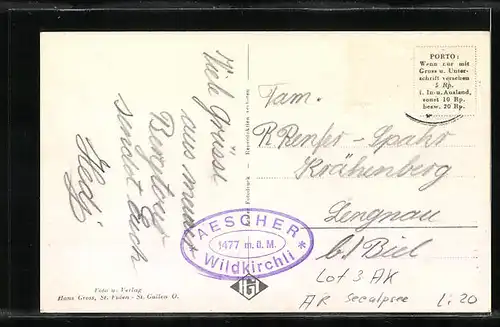 Viele Grüsse
aus meiner
Bergtour
sendet Euch
Hedi
Foto u. Verlag
Hans Gross, St. Fiden - St. Gallen O.
PORTO:
Wenn nur mit
Gruss u. Unter-
schrift versehen
5 Rp.
i. In- u. Ausland,
sonst 10 Rp.
bezw. 20 Rp.
Fam.
R Renfer-Spahr
Krähenberg
Lengnau
b/ Biel
AESCHER
1477 m.ü.M.
Wildkirchli
Lot 3 AK
AR Seealpsee
L: 20